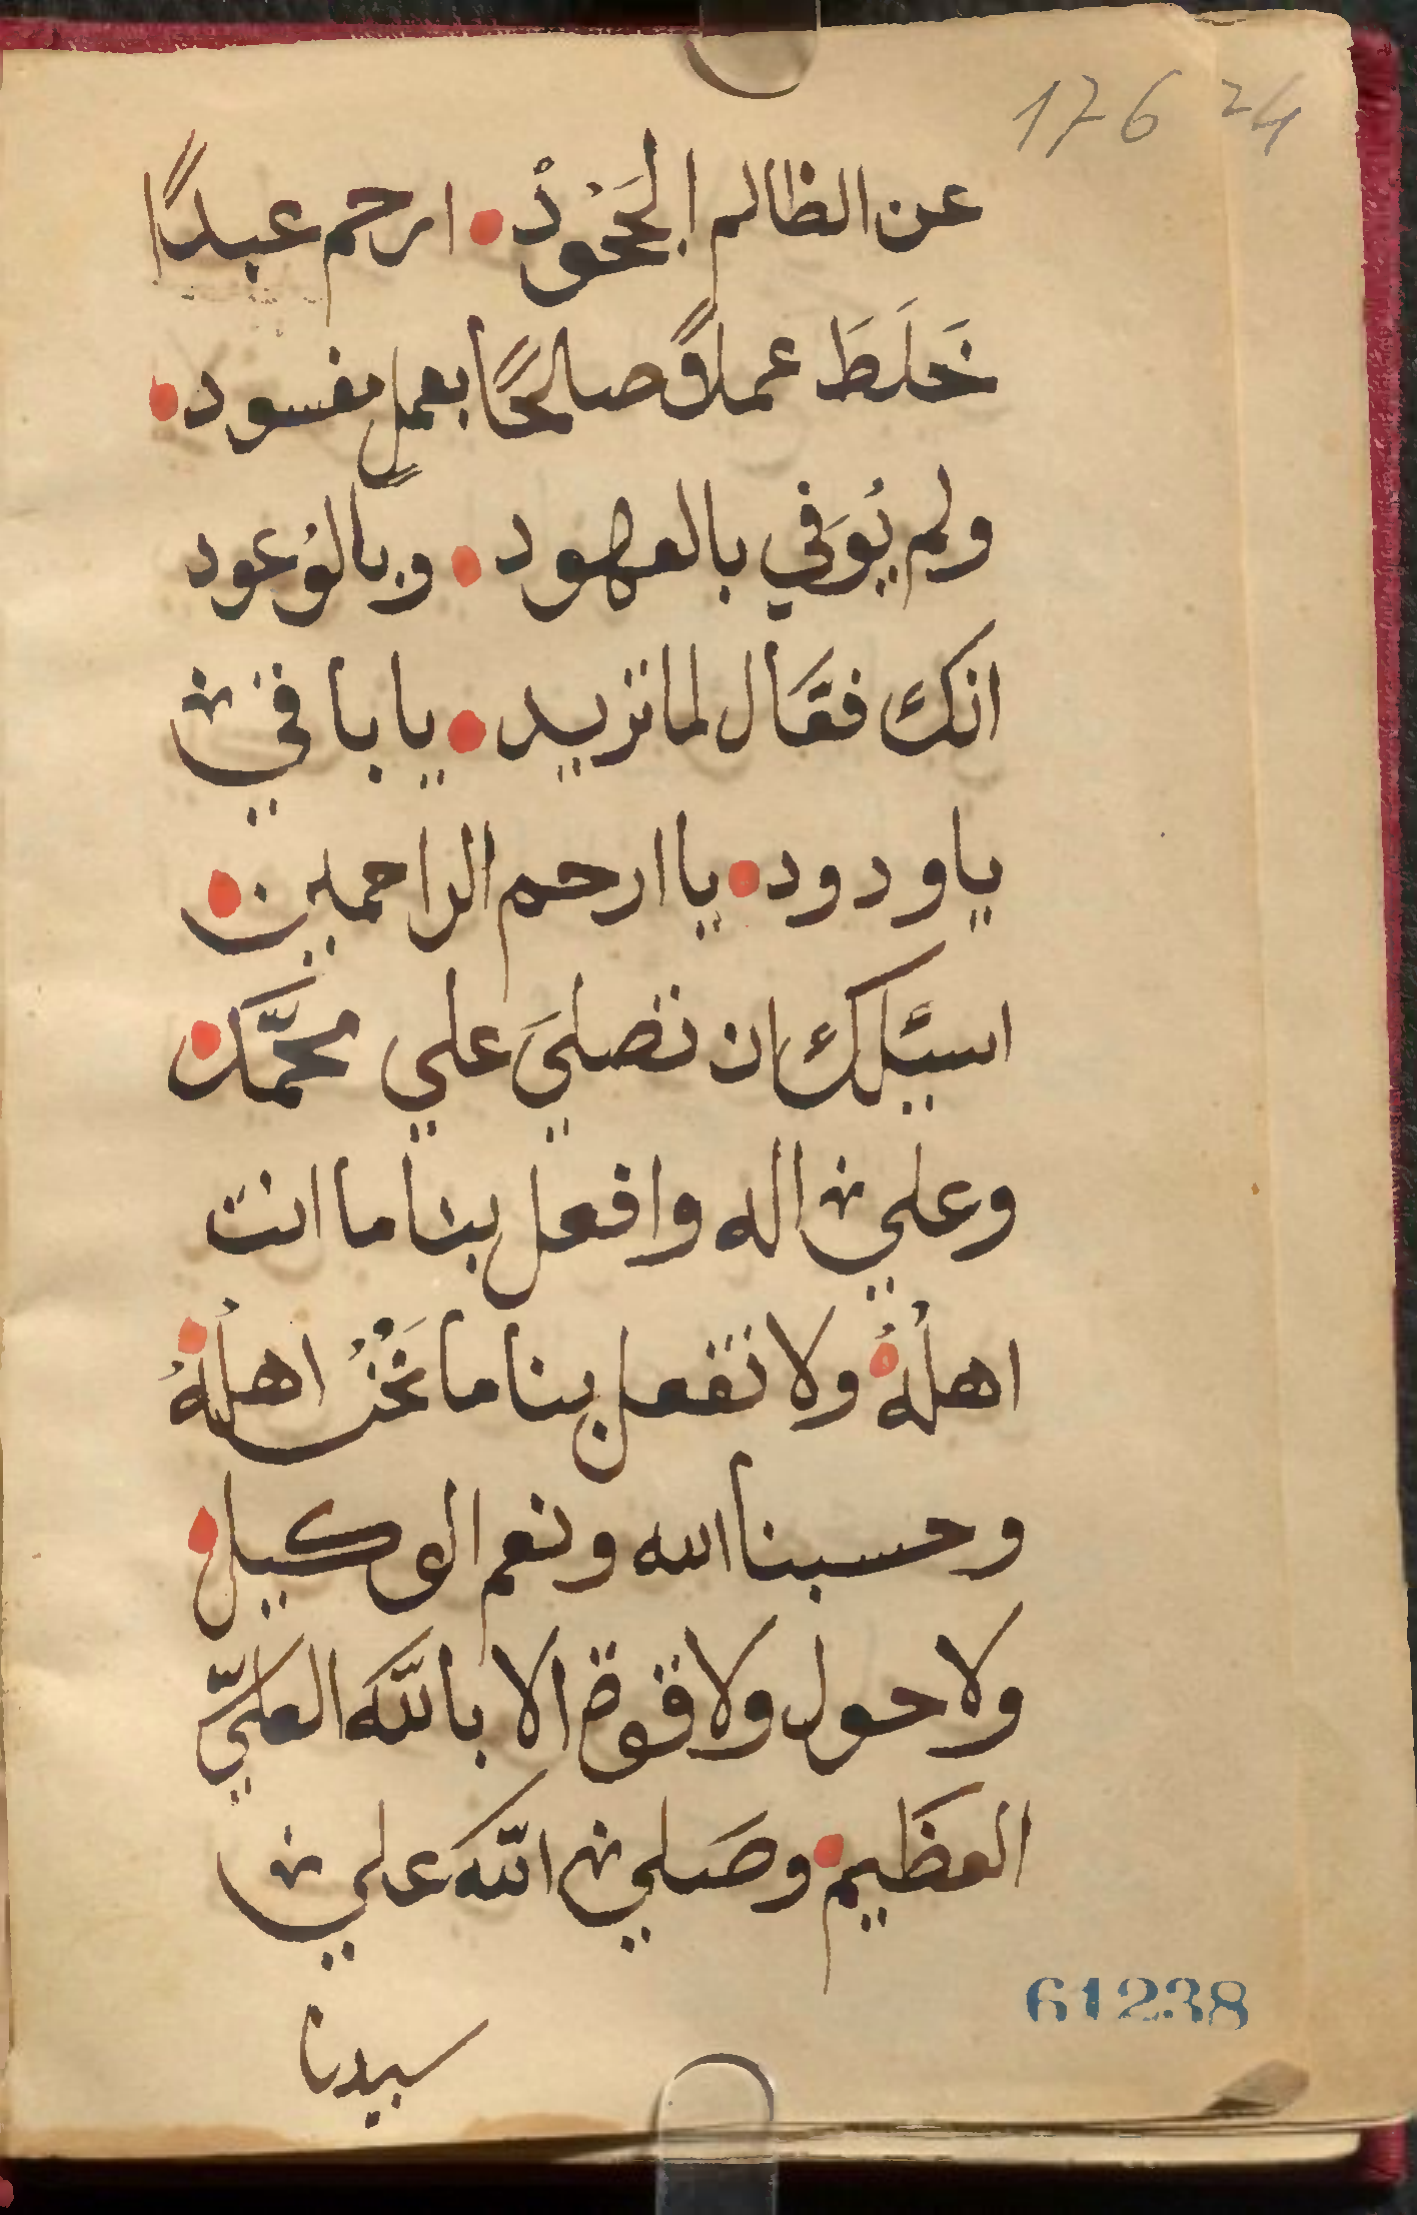 176 24
عن الظالم الجَحُودْ • ارحم عبدًا
خَلَطَ عملاً صالحًا بعملٍ مفسود •
ولم يُوَفي بالعهود • وبالوُعود
انك فقَال لما تريد • يا باقي
يا ودود • يا ارحم الراحمين •
اسئَلك ان تصليَ علي محمَّد •
وعلي اله وافعل بنا ما انت
اهلُهُ • ولا تفعل بنا ما نَحْنُ اهلُهُ •
وحسبنا الله ونعم الوكيل •
ولا حول ولا قوة الا باللّه العليِّ
العظيم • وصَلي اللّه علي
سيدنا
61238